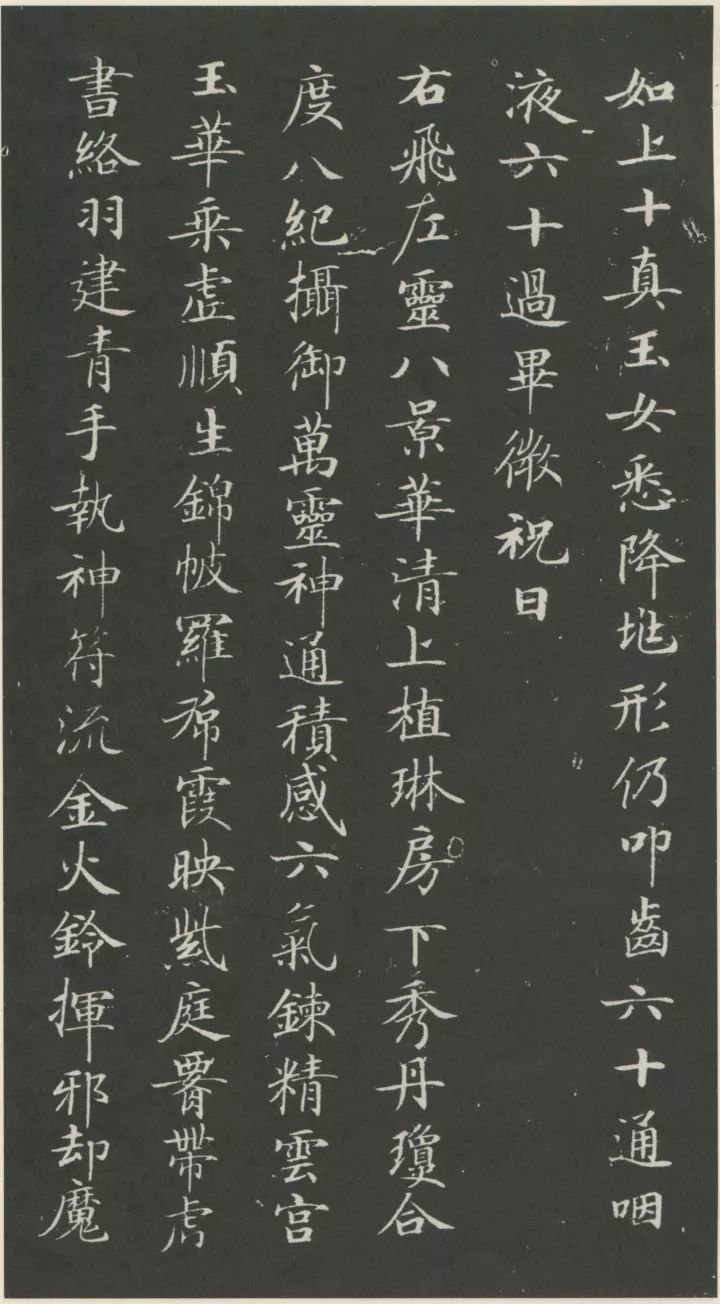 如上十真玉女悉降地形仍叩齒六十通咽
液六十過畢微祝曰
右飛左靈八景華清上植琳房下秀丹瓊合
度八紀攝御萬靈神通積感六氣鍊精雲宮
玉華乘虛順生錦帔羅帬霞映紫庭腰帶虎
書絡羽建青手執神符流金火鈴揮邪却魔